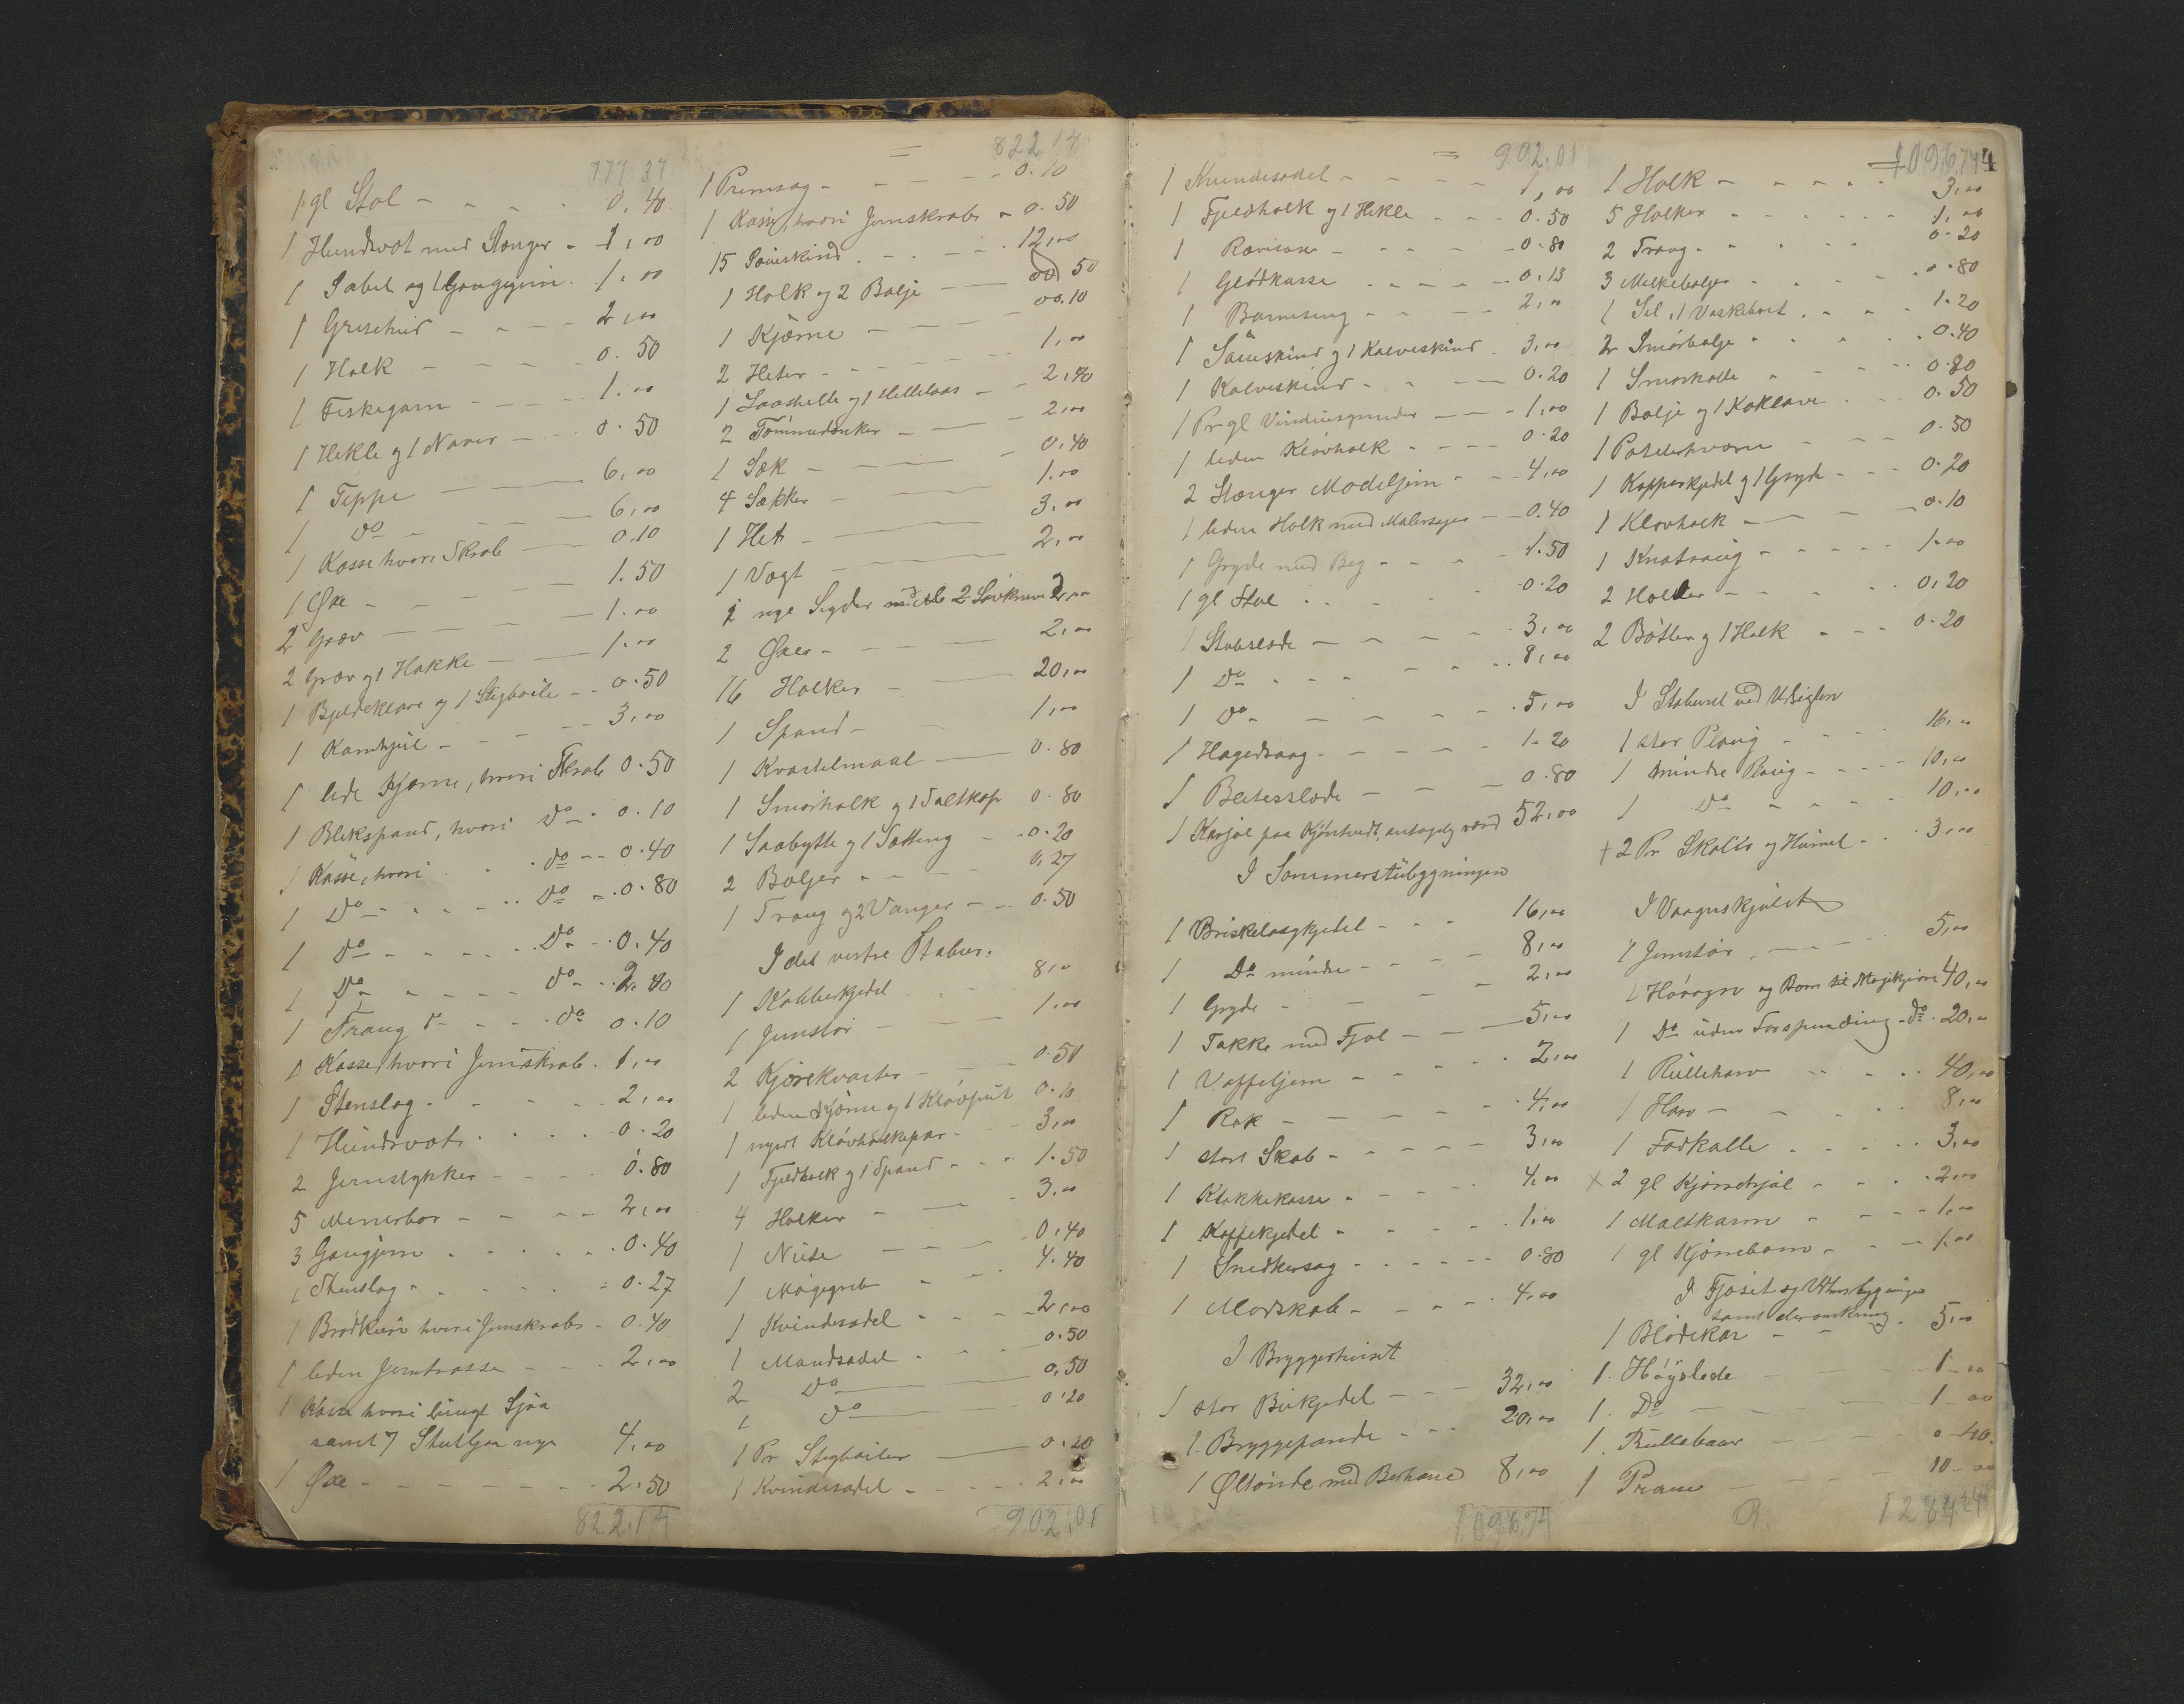 777 37
1 gl Stol - - - - 0,40
1 Hundvot med Stænger - 1,00
1 Sabel og 1 Gangjern . 1.00
1 Grisehud - - - - 2,00
1 Holk - - - - 0.50
1 Fiskegarn - - - - 1.00
1 Hekle og 1 Naver - - 0.50
1 Teppe - - - 6,00
1 Do - - - - 6,00
1 Kasse hvori Skrab - 0.10
1 Øxe - - - - 1.50
2 Græv - - - - 1.00
2 Græv og 1 Hakke - - 1.00
1 Bjeldeklave og 1 Stigbøile - - 0.50
1 Kamhjul - - - - 3,00
1 lede Kjærne, hvori Skrab 0.50
1 Blikspand, hvori Do - 0.10
1 Kasse, hvori . . do - - 0.40
1 Do - - - - Do - 0.80
1 Do - - - - Do - - 0.40
1 Do - - - - do - - 2.40
1 Traug d- - - . do 0.10
1 Kasse, hvori Jernskrab . 1,00
1 Stenslag . - - - 2,00
1 Hundsvot . . . . . 0.20
2 Jernstykker - - - 0.80
5 Minerbor - - - - 2,00
3 Gangjern . . . . . 0.40
1 Stenslag - . . . . 0.27
1 Brødkurv hvori Jernskrab - 0.40
1 leden Jerntrosse - - - 2,00
1 Kasse hvori Sjaa
samt 7 nye 4,00
1 Øxe - - - - - - 2.50
822,14
= 822 14
1 Primsag - - - - 0.10
1 Kasse, hvori Jernskrab - 0.50
15 Saueskind . - . - . 12,00
1 Holk og 2 Balje - 50
1 Kjærne - - - 00.10
2 Heter - - - - 1,00
1 Laashelle og 1 Hellelaas - - 2,40
2 Tømmerlænker - - - 2,00
1 Sæk - - - - 0,40
4 Sækker - - - 1.00
1 Het - - - 3,00
1 Vægt - - - 2,00
2 nye Sigder med 2 Løvknive 2,00
2 Øxer - - - 2,00
16 Holker - - 20,00
1 Spand - - 1,00
1 Kvartelmaal - 0.80
1 Smørholk og 1 Saltkop 0.80
1 Saabytte og 1 Sætting - - 0.20
2 Baljer - - - - 0,27
1 Traug og 2 Vanger - - 0.50
I det vestre Stabur.
1 Kobberkjedel . . . 8,00
1 Jernstør - - - 1.00
2 Kjørekvarter - - - 0.50
1 leden Kjærne og 1 Kløvput 0.10
1 nyert Kløvholkepar . - 3,00
1 Fjeldholk og 1 Spand - - - 1.50
4 Holker - - - 3,00
1 Niste - - - 0,40
1 Møgegreb - - . 4.40
1 Kvindesadel - - - - 2,00
1 Mandsadel . . . - 0.50
2 Do - - 0,50
1 Do - - 0,20
1 Pr Stigbøiler - 0.20
1 Kvindesadel - . . . 2,00
902,01
= 902,01
1 Kvindesadel - - - - 1,00
1 Fjeldholk og 1 Hekle - - - 0.50
1 Rævisaxe - - - - 0.80
1 Glødkasse - - - - 0.13
1 Barneseng - - - - 2,00
1 Saueskind og 1 Kalveskind . 3,00
1 Kalveskind - - - 0.20
1 Pr gl Vinduesgrinder - - - 1,00
1 leden Kløvholk - - - - 0.20
2 Stænger Modeljern - - - 4,00
1 leden Holk med Malersager - - 0.40
1 Gryde med Beg - - - - 1.50
1 gl Stol . . - - - 0.20
1 Stabslæde - - - - . 3,00
1 Do - - - - . 8,00
1 Do - - - - . 5,00
1 Hagedraag . - - - - 1.20
1 Beitesslæde - - - - 0.80
1 Karjol paa Kjøntvedt, antagelig værd 52,00
I Sommerstubygningen
1 Briskelaagkjedel - - - 16,00
1 Do mindre - - - - 8,00
1 Gryde - - - - - 2,00
1 Takke med Fjøl - - - 5,00
1 Vaffeljern - - - - . 2,00
1 Rok - - - - . 4,00
1 stort Skab - - - - 3,00
1 Klokkekasse - - - - 4,00
1 Kaffekjedel - - - - . 1,00
1 Snedkersag - - - - - 0.80
1 Madskab - - - - . 4,00
I Bryggerhuset
1 stor Bukjedel - - - 32,00
1 Bryggepande - . . 20,00
1 Øltønde med Berhane 8,00
1096,74
1096,74
1 Holk - - - - . 3,00
5 Holker - - - - - - 1,00
2 Traug . - - - - 0.20
3 Melkebaljer - - - - 0.80
1 Sil, 1 Vaskebret . - - - 1.20
2 Smørbalje - - - - . 0.40
1 Smørkolle - - - - 0.80
1 Balje og 1 Koklave . - - 0.50
1 - - - 0.50
1 Kopperkjedel og 1 Gryde - - - 0.20
1 Kløvholk - - - - 0.10
1 - - - - 1.00
2 Holker - - - - . 0,20
2 Bøtter og 1 Holk . - - 0.20
I Staburet ved
1 stor Ploug - - - - 16,00
1 mindre Ploug - - - - 10,00
1 Do - - - - 10,00
+ 2 Pr Skalk og Humel - . . 3,00
I Vaagnskjulet
1 Jernstør . - - - - 5,00
1 Høvogn og Bom til Møgkjøre 40,00
1 Do uden Forspænding - do . 20,00
1 Rulleharv . . . . 40,00
1 Harv - - - - . 8,00
1 Fodkolle . . . . . 3,00
+ 2 gl Kjørrehjul - - - . 2,00
1 Maltkarm - - - - 1,00
1 gl Kjørrebom - - - - 1.00
I Fjøset og Udhusbygninger
samt deromkring
1 Blødekar - - - 5,00
1. Høyslede - - 1-00
1. Do - - - 1 00
1. Rullebaar - - 0-40.
1 Pram - - - 10-00
1284,24